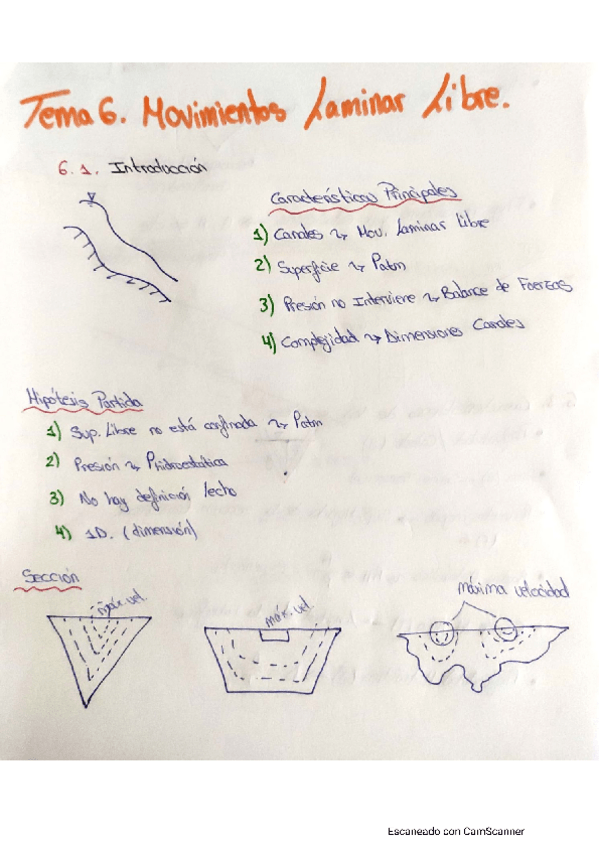 Tema 6. Movimientos Laminar Libre.
6.1. Introducción
Características Principales
1) Canales ↝ Mov. Laminar Libre
2) Superficie ↝ Patm
3) Presión no Interviene ↝ Balance de Fuerzas
4) Complejidad ↝ Dimensiones Canales
Hipótesis Partida
1) Sup. Libre no está confinada ↝ Patm
2) Presión ↝ Phidroestática
3) No hay definición lecho
4) 1D. (dimensión)
Sección
máx. vel.
máx. vel
máxima velocidad
Escaneado con CamScanner